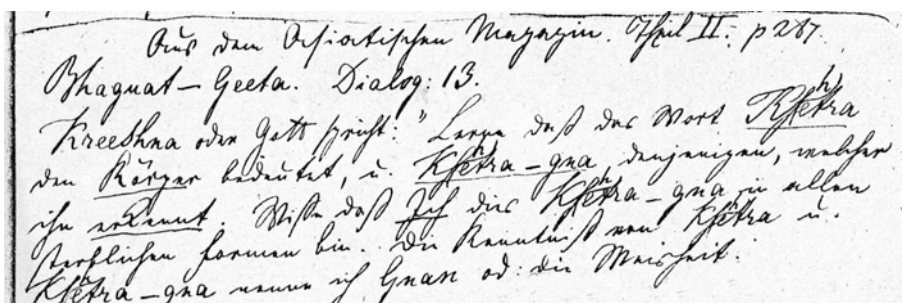 Aus dem Asiatischen Magazin. Theil II: p 287.
Bhaguat-Geeta. Dialog: 13.
Kreeshna oder Gott spricht: "Lerne daß das Wort Kshetra
den Körper bedeutet, u. Kshetra-gna denjenigen, welcher
ihn erkennt. Wisse daß Ich das Kshetra-gna in allen
sterblichen Formen bin. Die Kenntniß von Kshetra u.
Kshetra-gna nenne ich Gnan od: die Weisheit.